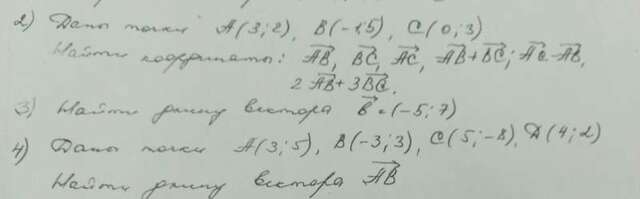 2) Даны точки A(3;2), B(-1;5), C(0;3)
Найти координаты: AB, BC, AC, AB+BC; AC-AB,
2AB+3BC.
3) Найти длину вектора b=(-5;7)
4) Даны точки A(3;5), B(-3;3), C(5;-8), D(4;2)
Найти длину вектора AB